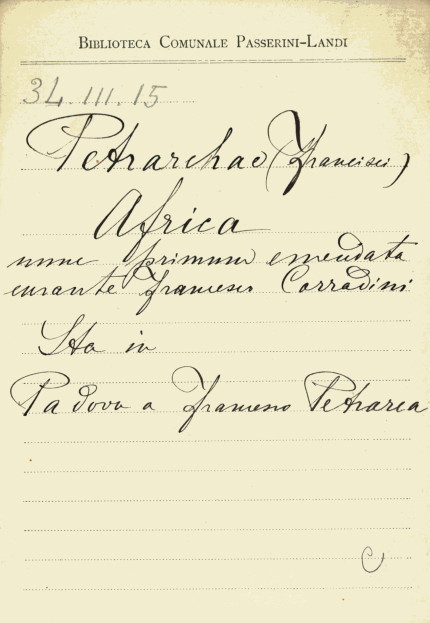 BIBLIOTECA COMUNALE PASSERINI-LANDI
34.III.15
Petrarchae (Francisci)
Africa
nunc primum emendata
curante Francesco Corradini
Sta in
Padova a Francesco Petrarca
C